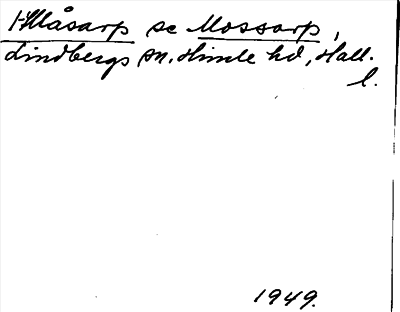 Måsarp se Mossarp,
Lindbergs sn. Himle hd, Hall.
l.
1949.